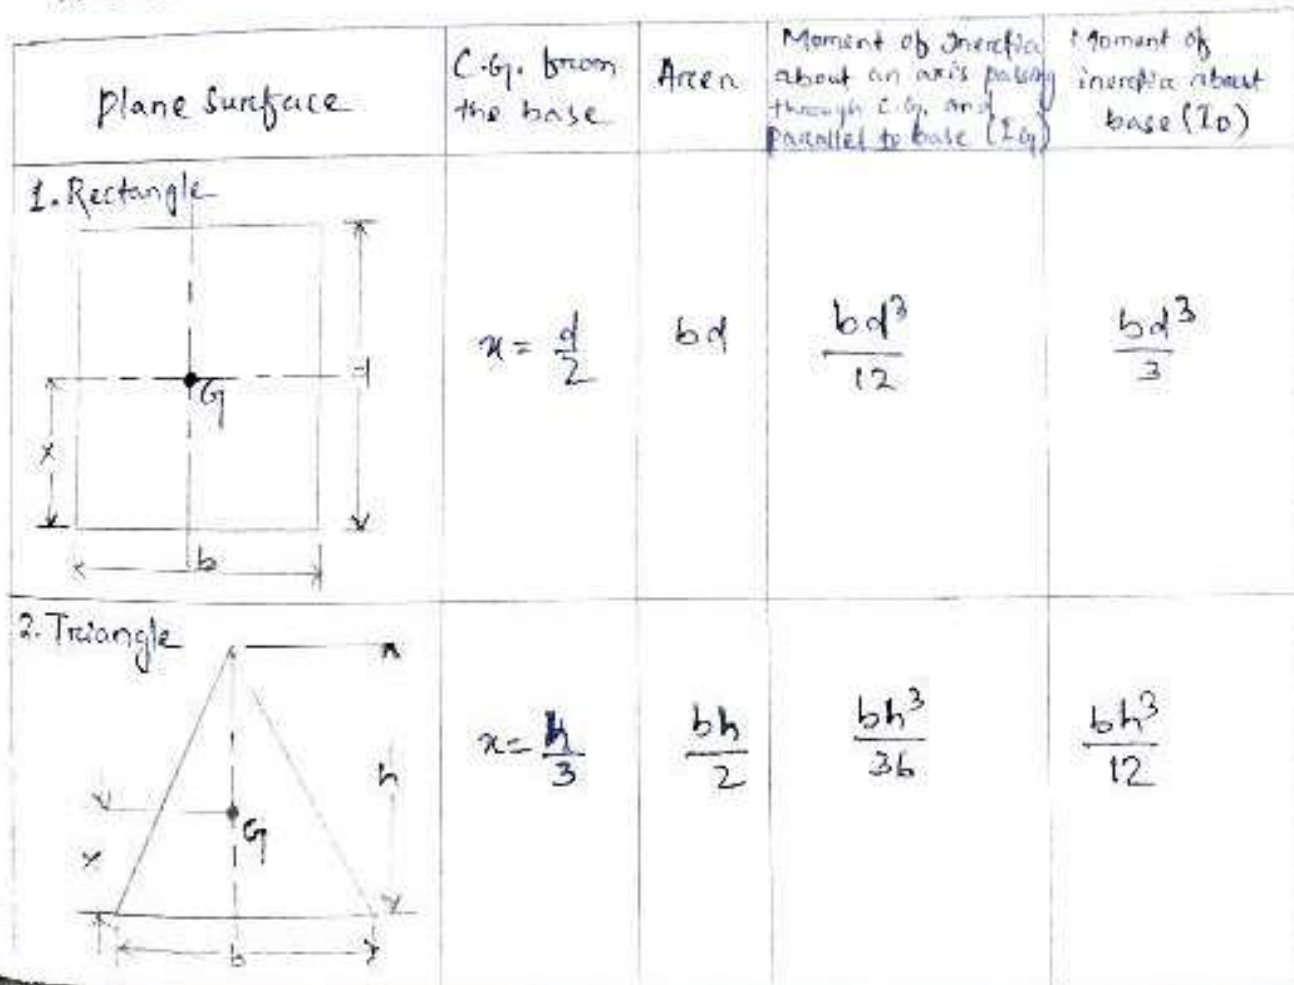 Plane Surface
C.G. from
the base
Area
Moment of Inertia
about an axis passing
through C.G. and
parallel to base (IG)
Moment of
inertia about
base (I0)
1. Rectangle
G
x
d
b
x = d/2
bd
bd³/12
bd³/3
2. Triangle
h
G
x
b
x = h/3
bh/2
bh³/36
bh³/12